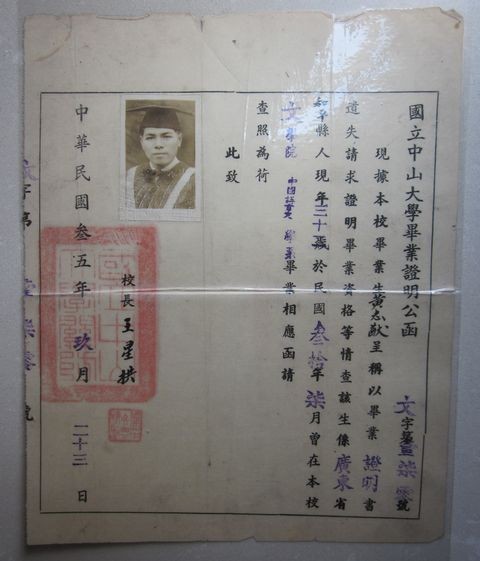 國立中山大學畢業證明公函
文字第壹柒零號
現據本校畢業生黃志猷呈稱以畢業證明書
遺失請求證明畢業資格等情查該生係廣東省
和平縣人現年三十歲於民國叁拾年柒月曾在本校
文學院中國語言學系畢業相應函請
查照為荷
此致
校長王星拱
中華民國叁五年玖月二十三日